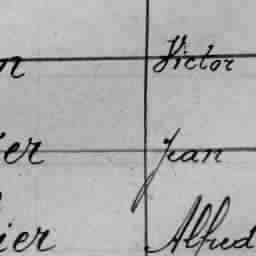 n Victor
er Jean
ier Alfred